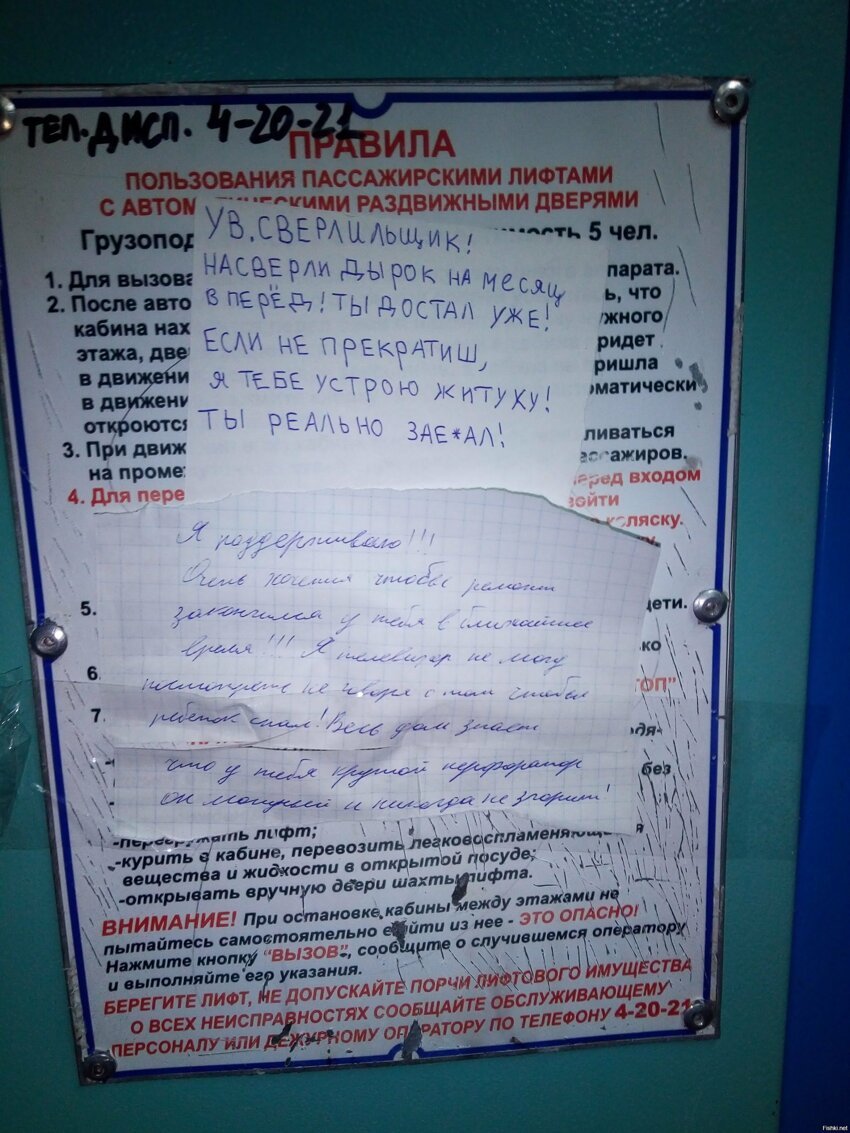 ТЕЛ. ДИСП. 4-20-21
ПРАВИЛА
ПОЛЬЗОВАНИЯ ПАССАЖИРСКИМИ ЛИФТАМИ
С АВТОМ ТИЧЕСКИМИ РАЗДВИЖНЫМИ ДВЕРЯМИ
Грузопод мость 5 чел.
1. Для вызова парата.
2. После авто ь, что
кабина нах ужного
этажа, две ридет
в движени ришла
в движени оматически
откроются
3. При движ ливаться
на проме ассажиров.
4. Для пере еред входом
войти
коляску.
УВ. СВЕРЛИЛЬЩИК!
НАСВЕРЛИ ДЫРОК НА МЕСЯЦ
В ПЕРЁД! ТЫ ДОСТАЛ УЖЕ!
ЕСЛИ НЕ ПРЕКРАТИШ,
Я ТЕБЕ УСТРОЮ ЖИТУХУ!
ТЫ РЕАЛЬНО ЗАЕ*АЛ!
Я поддерживаю!!!
Очень хочется чтобы ремонт
закончился у тебя в ближайшее
время!!! Я телевизор не могу
посмотреть не говоря о том чтобы
ребенок спал! Весь дом знает
что у тебя крутой перфоратор
он мощный и никогда не згорит!
5. дети.
6. ько
ТОП"
7. дя-
без
-перегружать лифт;
-курить в кабине, перевозить легковоспламеняющиеся
вещества и жидкости в открытой посуде;
-открывать вручную двери шахты лифта.
ВНИМАНИЕ! При остановке кабины между этажами не
пытайтесь самостоятельно выйти из нее - ЭТО ОПАСНО!
Нажмите кнопку "ВЫЗОВ", сообщите о случившемся оператору
и выполняйте его указания.
БЕРЕГИТЕ ЛИФТ, НЕ ДОПУСКАЙТЕ ПОРЧИ ЛИФТОВОГО ИМУЩЕСТВА
О ВСЕХ НЕИСПРАВНОСТЯХ СООБЩАЙТЕ ОБСЛУЖИВАЮЩЕМУ
ПЕРСОНАЛУ ИЛИ ДЕЖУРНОМУ ОПЕРАТОРУ ПО ТЕЛЕФОНУ 4-20-21
Fishki.net